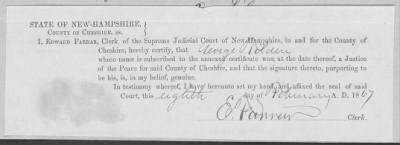 STATE OF NEW-HAMPSHIRE,
COUNTY OF CHESHIRE, ss.
I, EDWARD FARRAR, Clerk of the Supreme Judicial Court of New-Hampshire, in and for the County of
Cheshire, hereby certify, that George Holden
whose name is subscribed to the annexed certificate was, at the date thereof, a Justice
of the Peace for said County of Cheshire, and that the signature thereto, purporting to
be his, is, in my belief, genuine.
In testimony whereof, I have hereunto set my hand and affixed the seal of said
Court, this eighth day of February A. D. 1867
E. Farrar Clerk.